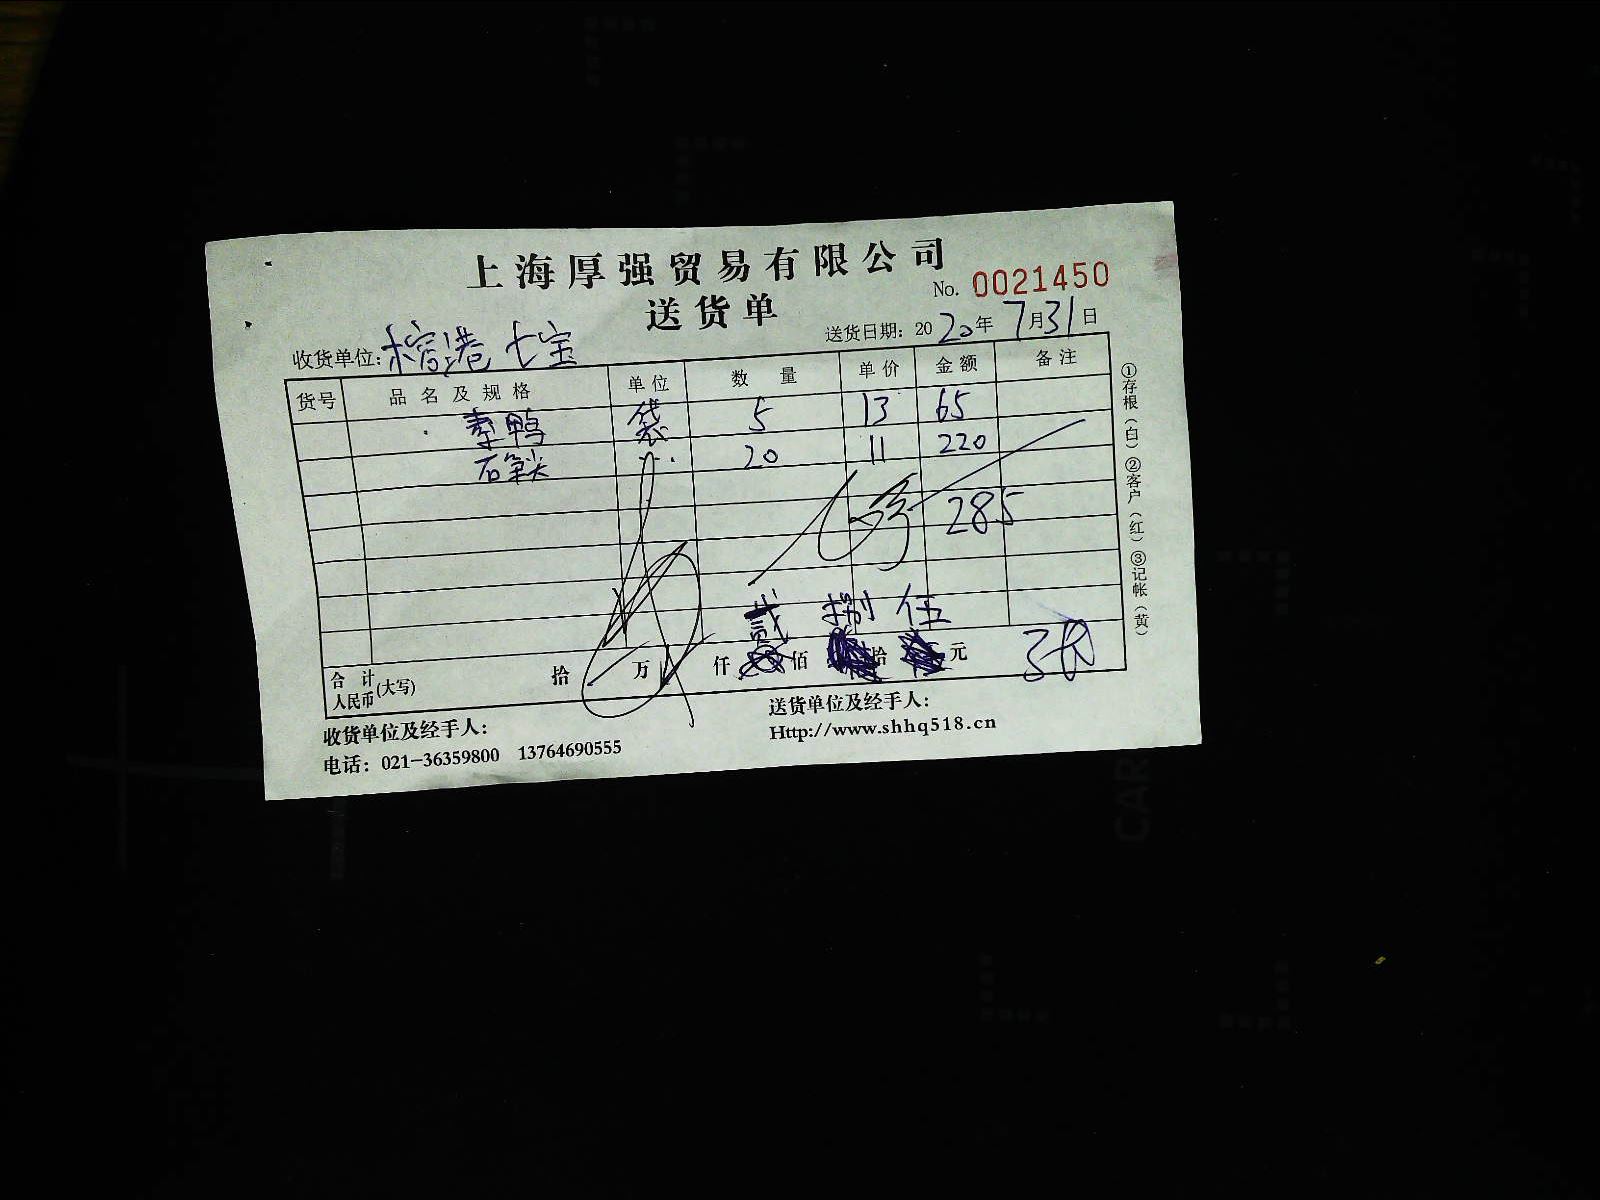 上海厚强贸易有限公司
送货单
No. 0021450
收货单位: 七宝
送货日期: 2020年7月31日
货号 品名及规格 单位 数量 单价 金额 备注
素鸭 袋 5 13 65
石笋尖 〃 20 11 220
285
合计人民币(大写) 拾 万 仟 贰佰 捌拾 伍元
收货单位及经手人:
送货单位及经手人:
电话: 021-36359800 13764690555
Http://www.shhq518.cn
①存根(白)②客户(红)③记帐(黄)